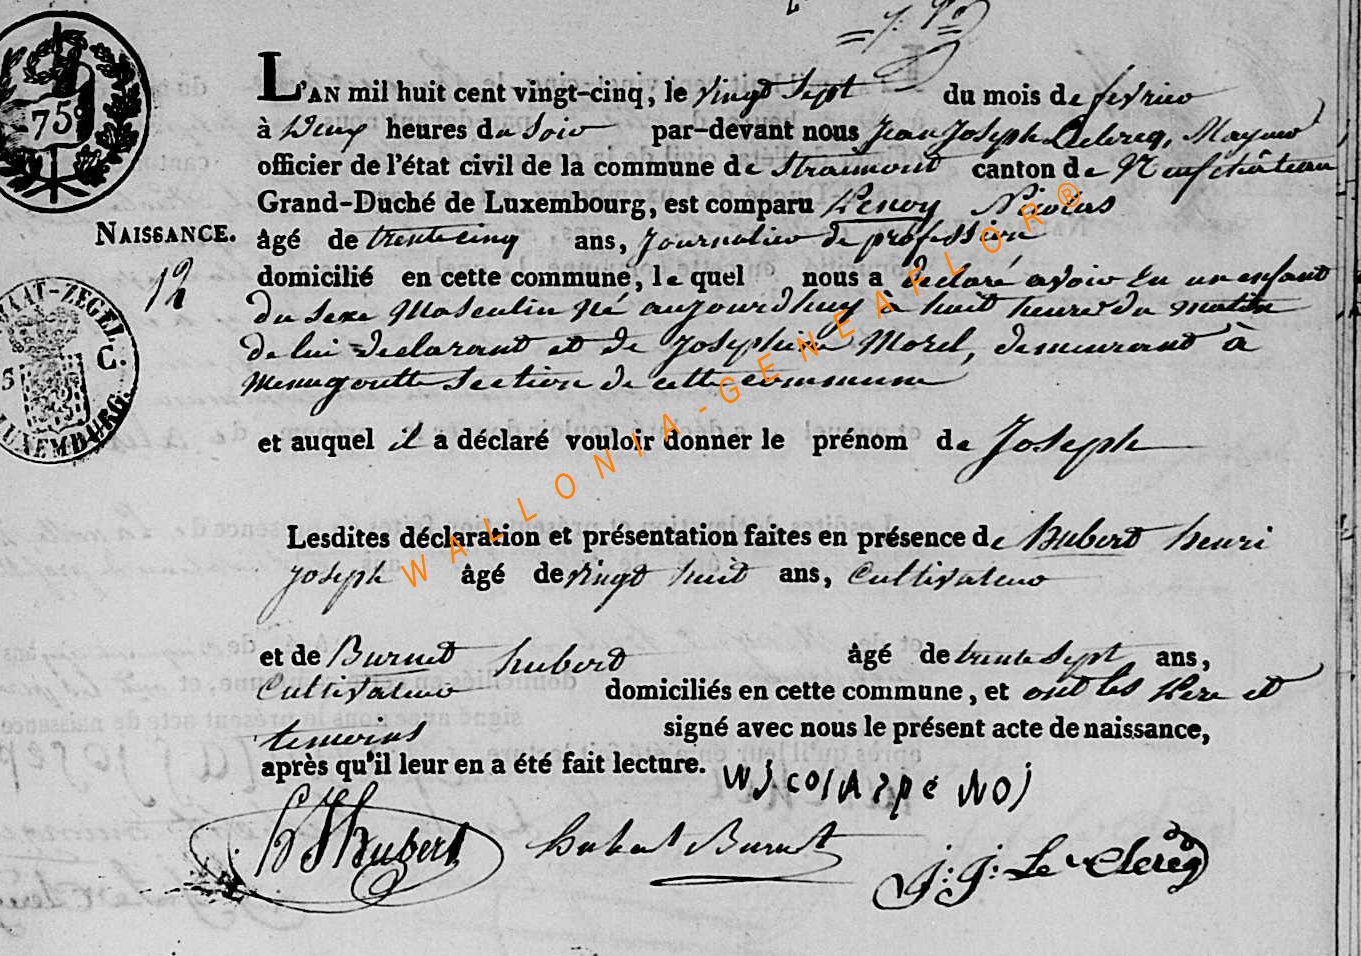 75
L'AN mil huit cent vingt-cinq, le vingt sept du mois de fevrier
à deux heures du soir par-devant nous Jean Joseph Leclercq, Mayeur
officier de l'état civil de la commune de Straimont canton de Neufchâteau
Grand-Duché de Luxembourg, est comparu Penoy Nicolas
NAISSANCE.
12
âgé de trente cinq ans, Journalier de profession
domicilié en cette commune, le quel nous a declaré avoir eu un enfant
du sexe Masculin né aujourdhuy à huit heures du matin
de lui declarant et de Josephine Morel, demeurant à
Menugoutte section de cette commune
STAAT-ZEGEL.
C.
LUXEMBURG.
et auquel il a déclaré vouloir donner le prénom de Joseph
Lesdites déclaration et présentation faites en présence de Hubert henri
joseph âgé de vingt huit ans, Cultivateur
et de Burnet hubert âgé de trente sept ans,
Cultivateur domiciliés en cette commune, et ont les Pere et
temoins signé avec nous le présent acte de naissance,
après qu'il leur en a été fait lecture.
hubert Burnet
J: J: Le Clercq
WALLONIA-GENEAFLOR®